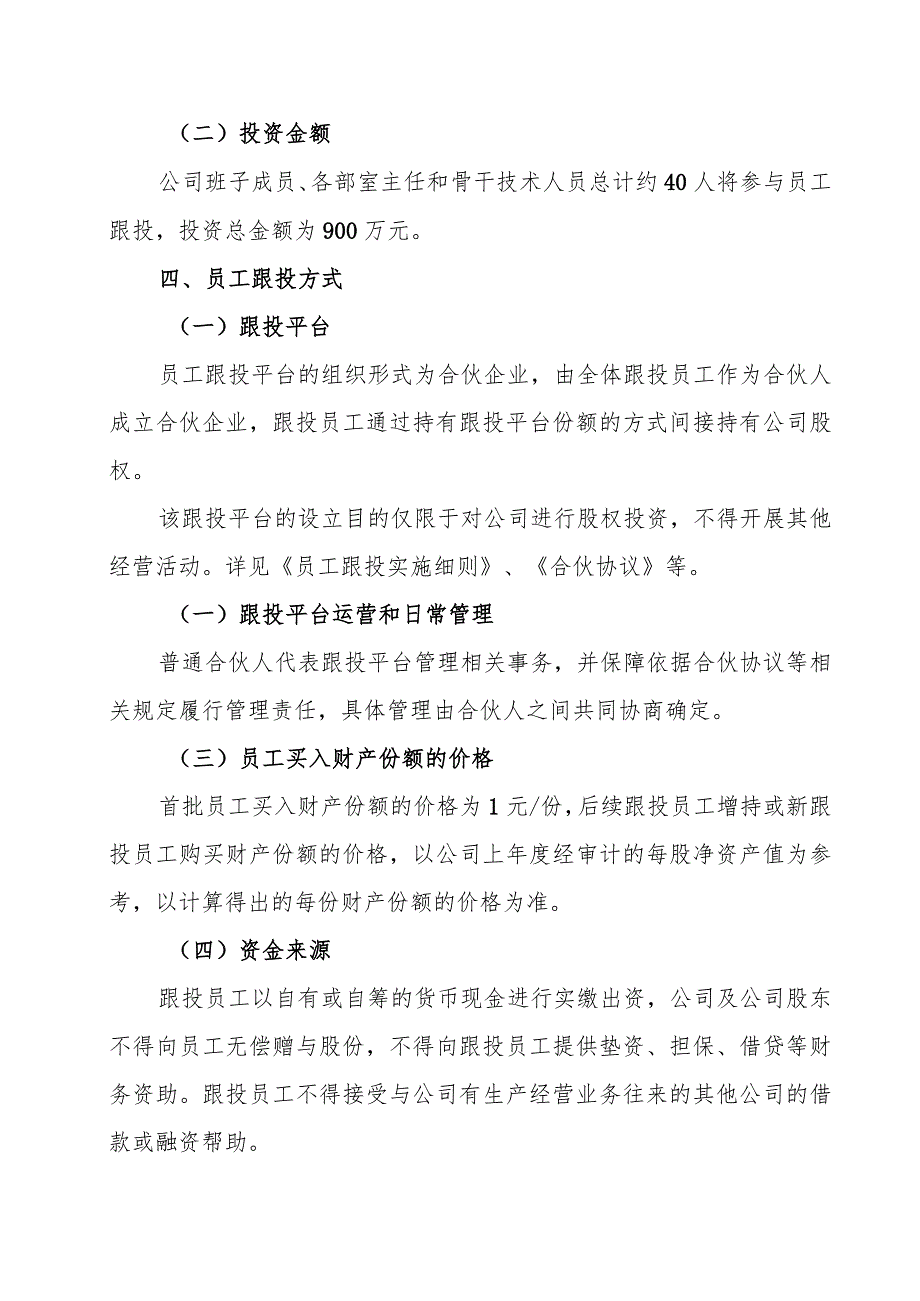 （二）投资金额
公司班子成员、各部室主任和骨干技术人员总计约 40 人将参与员工
跟投，投资总金额为 900 万元。
四、员工跟投方式
（一）跟投平台
员工跟投平台的组织形式为合伙企业，由全体跟投员工作为合伙人
成立合伙企业，跟投员工通过持有跟投平台份额的方式间接持有公司股
权。
该跟投平台的设立目的仅限于对公司进行股权投资，不得开展其他
经营活动。详见《员工跟投实施细则》、《合伙协议》等。
（一）跟投平台运营和日常管理
普通合伙人代表跟投平台管理相关事务，并保障依据合伙协议等相
关规定履行管理责任，具体管理由合伙人之间共同协商确定。
（三）员工买入财产份额的价格
首批员工买入财产份额的价格为 1 元/份，后续跟投员工增持或新跟
投员工购买财产份额的价格，以公司上年度经审计的每股净资产值为参
考，以计算得出的每份财产份额的价格为准。
（四）资金来源
跟投员工以自有或自筹的货币现金进行实缴出资，公司及公司股东
不得向员工无偿赠与股份，不得向跟投员工提供垫资、担保、借贷等财
务资助。跟投员工不得接受与公司有生产经营业务往来的其他公司的借
款或融资帮助。